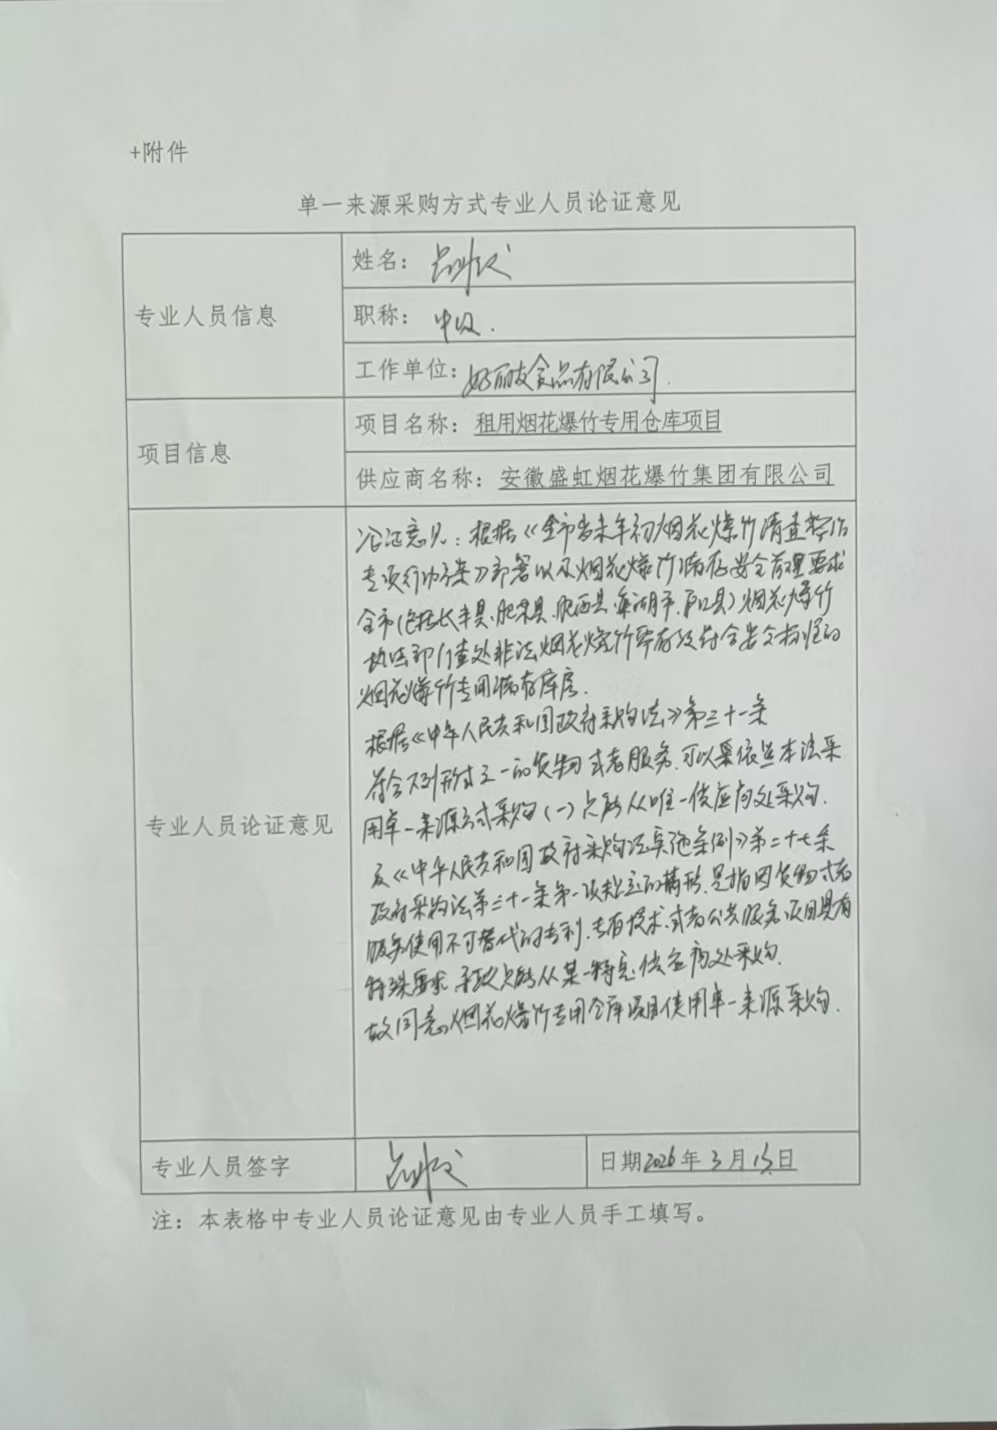 +附件
单一来源采购方式专业人员论证意见
专业人员信息
姓名：
职称：中级.
工作单位：好丽友食品有限公司.
项目信息
项目名称：租用烟花爆竹专用仓库项目
供应商名称：安徽盛虹烟花爆竹集团有限公司
专业人员论证意见
论证意见：根据《全市岁末年初烟花爆竹清查整治
专项行动方案》部署以及烟花爆竹储存安全管理要求
全市(包括长丰县、肥东县、肥西县、巢湖市、庐江县)烟花爆竹
执法部门查处非法烟花爆竹需存放符合安全标准的
烟花爆竹专用储存库房.
根据《中华人民共和国政府采购法》第三十一条
符合下列形式之一的货物或者服务,可以依照本法采
用单一来源方式采购(一)只能从唯一供应商处采购.
及《中华人民共和国政府采购法实施条例》第二十七条
政府采购法第三十一条第一项规定的情形,是指因货物或者
服务使用不可替代的专利、专有技术,或者公共服务项目具有
特殊要求,导致只能从某一特定供应商处采购.
故同意烟花爆竹专用仓库项目使用单一来源采购.
专业人员签字
日期2026年3月15日
注：本表格中专业人员论证意见由专业人员手工填写。